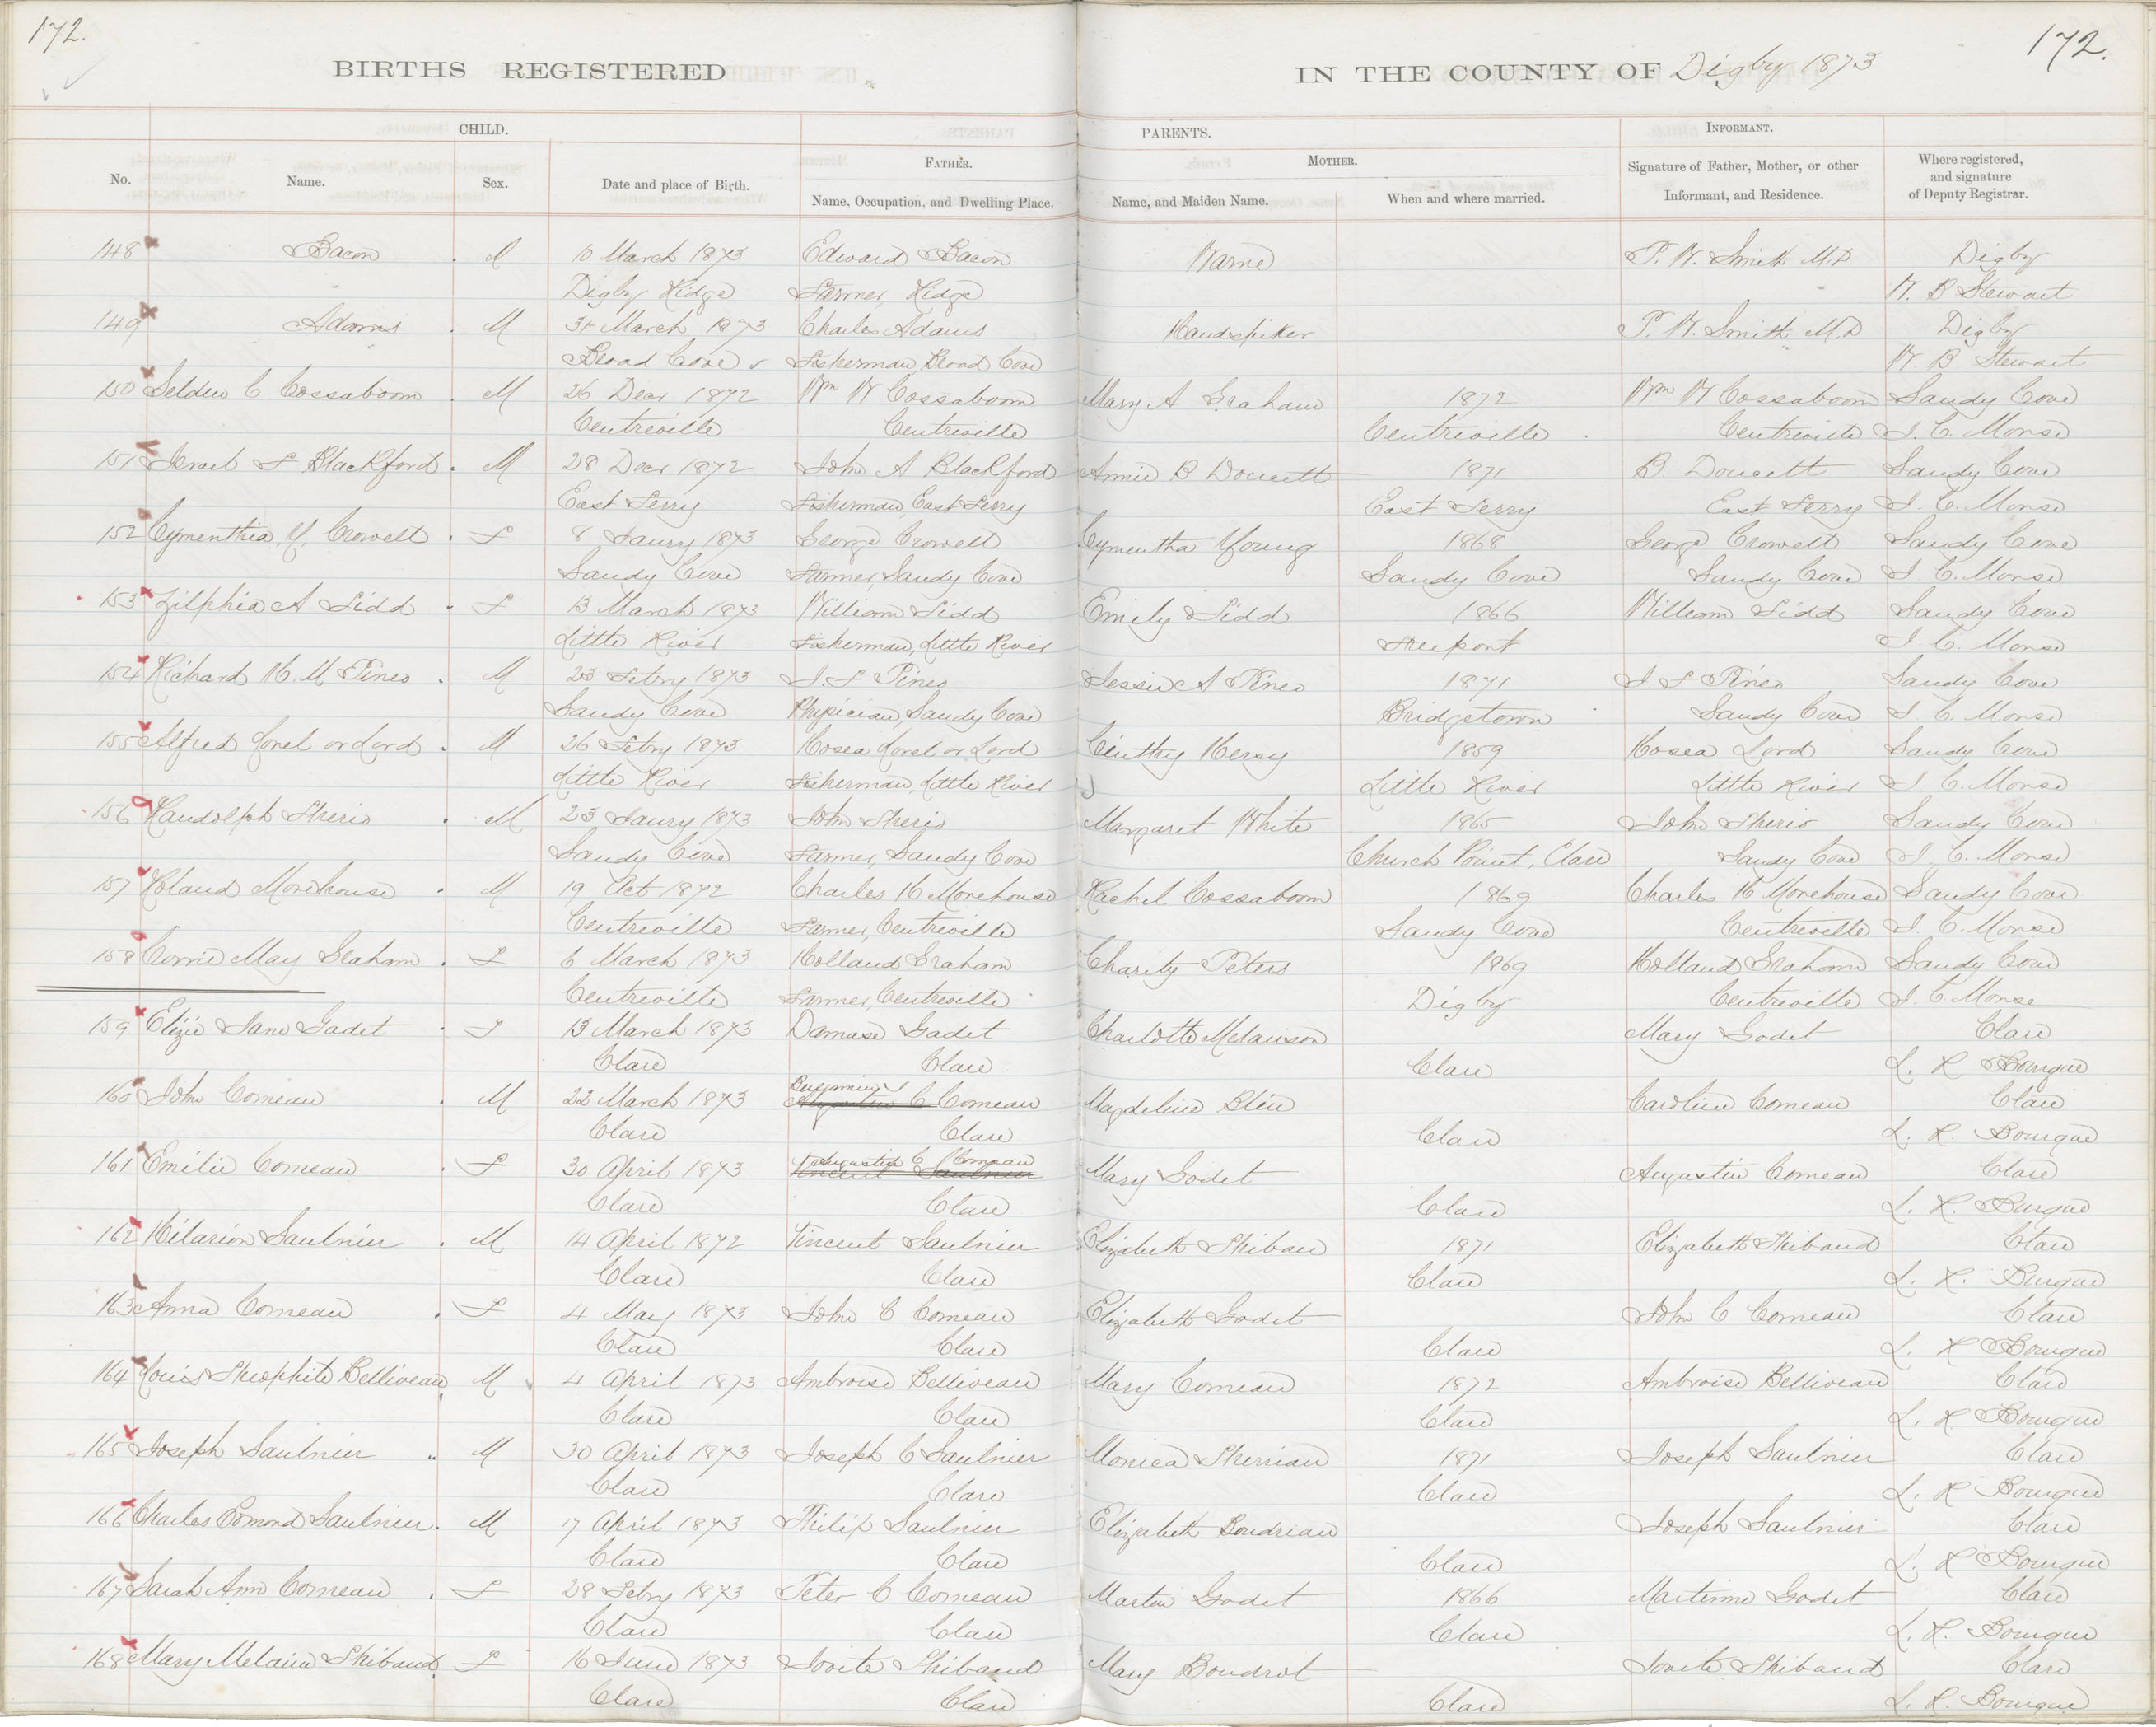 172.
172.
BIRTHS REGISTERED
IN THE COUNTY OF Digby 1873
CHILD.
PARENTS.
INFORMANT.
No.
Name.
Sex.
Date and place of Birth.
FATHER.
Name, Occupation, and Dwelling Place.
MOTHER.
Name, and Maiden Name.
When and where married.
Signature of Father, Mother, or other
Informant, and Residence.
Where registered,
and signature
of Deputy Registrar.
148 Bacon M 10 March 1873 Edward Bacon Warne P. W. Smith M.D Digby
Digby Ridge Farmer, Ridge W. B Stewart
149 Adams M 31 March 1873 Charles Adams Handspiker P. W. Smith M.D Digby
Broad Cove Fisherman, Broad Cove W. B Stewart
150 Selden C Cossaboom M 26 Decr 1872 Wm W Cossaboom Mary A Graham 1872 Wm W Cossaboom Sandy Cove
Centreville Centreville Centreville Centreville J. C. Morse
151 Israel F Blackford M 28 Decr 1872 John A Blackford Annie B Doucett 1871 B. Doucett Sandy Cove
East Ferry Fisherman, East Ferry East Ferry East Ferry J. C. Morse
152 Cymenthia Y. Crowell F 8 Janry 1873 George Crowell Cymentha Young 1868 George Crowell Sandy Cove
Sandy Cove Farmer, Sandy Cove Sandy Cove Sandy Cove J. C. Morse
153 Zilphia A Tidd F 13 March 1873 William Tidd Emily Tidd 1866 William Tidd Sandy Cove
Little River Fisherman, Little River Freeport J. C. Morse
154 Richard H. M Pineo M 23 Febry 1873 J. F Pineo Jessie A Pineo 1871 J F Pineo Sandy Cove
Sandy Cove Physician, Sandy Cove Bridgetown Sandy Cove J. C. Morse
155 Alfred Lorel or Lord M 26 Febry 1873 Hosea Lorel or Lord Cinthy Hersy 1859 Hosea Lord Sandy Cove
Little River Fisherman, Little River Little River Little River J C. Morse
156 Randolph Therio M 23 Janry 1873 John Therio Margaret White 1865 John Therio Sandy Cove
Sandy Cove Farmer, Sandy Cove Church Point, Clare Sandy Cove J. C. Morse
157 Roland Morehouse M 19 Oct 1872 Charles H Morehouse Rachel Cossaboom 1869 Charles H Morehouse Sandy Cove
Centreville Farmer, Centreville Sandy Cove Centreville J. C. Morse
158 Corrie May Graham F 6 March 1873 Holland Graham Charity Peters 1869 Holland Graham Sandy Cove
Centreville Farmer, Centreville Digby Centreville J. C. Morse
159 Elizie Jane Gadet F 13 March 1873 Damase Gadet Charlotte Melanson Mary Godet Clare
Clare Clare Clare L. H Bourque
160 John Comeau M 22 March 1873 Benjamin J Augustin C Comeau Magdeline Blin Caroline Comeau Clare
Clare Clare Clare L. H. Bourque
161 Emilie Comeau F 30 April 1873 Augustin C Comeau Vincent Saulnier Mary Godet Augustin Comeau Clare
Clare Clare Clare L. H. Burque
162 Hilarion Saulnier M 14 April 1872 Vincent Saulnier Elizabeth Thibau 1871 Elizabeth Thibaud Clare
Clare Clare Clare L. H. Burque
163 Anna Comeau F 4 May 1873 John C Comeau Elizabeth Godet John C Comeau Clare
Clare Clare Clare L. H Bourque
164 Louis Theophile Belliveau M 4 April 1873 Ambroise Belliveau Mary Comeau 1872 Ambroise Belliveau Clare
Clare Clare Clare L. H Bourque
165 Joseph Saulnier M 30 April 1873 Joseph C Saulnier Monica Therriau 1871 Joseph Saulnier Clare
Clare Clare Clare L. H Bourque
166 Charles Edmond Saulnier M 17 April 1873 Philip Saulnier Elizabeth Boudriau Joseph Saulnier Clare
Clare Clare Clare L. H Bourque
167 Sarah Ann Comeau F 28 Febry 1873 Peter C Comeau Martin Godet 1866 Martinne Godet Clare
Clare Clare Clare L. H. Bourque
168 Mary Melaina Thibaud F 16 June 1873 Jovite Thibaud Mary Boudrot Jovite Thibaud Clare
Clare Clare Clare L. H. Bourque